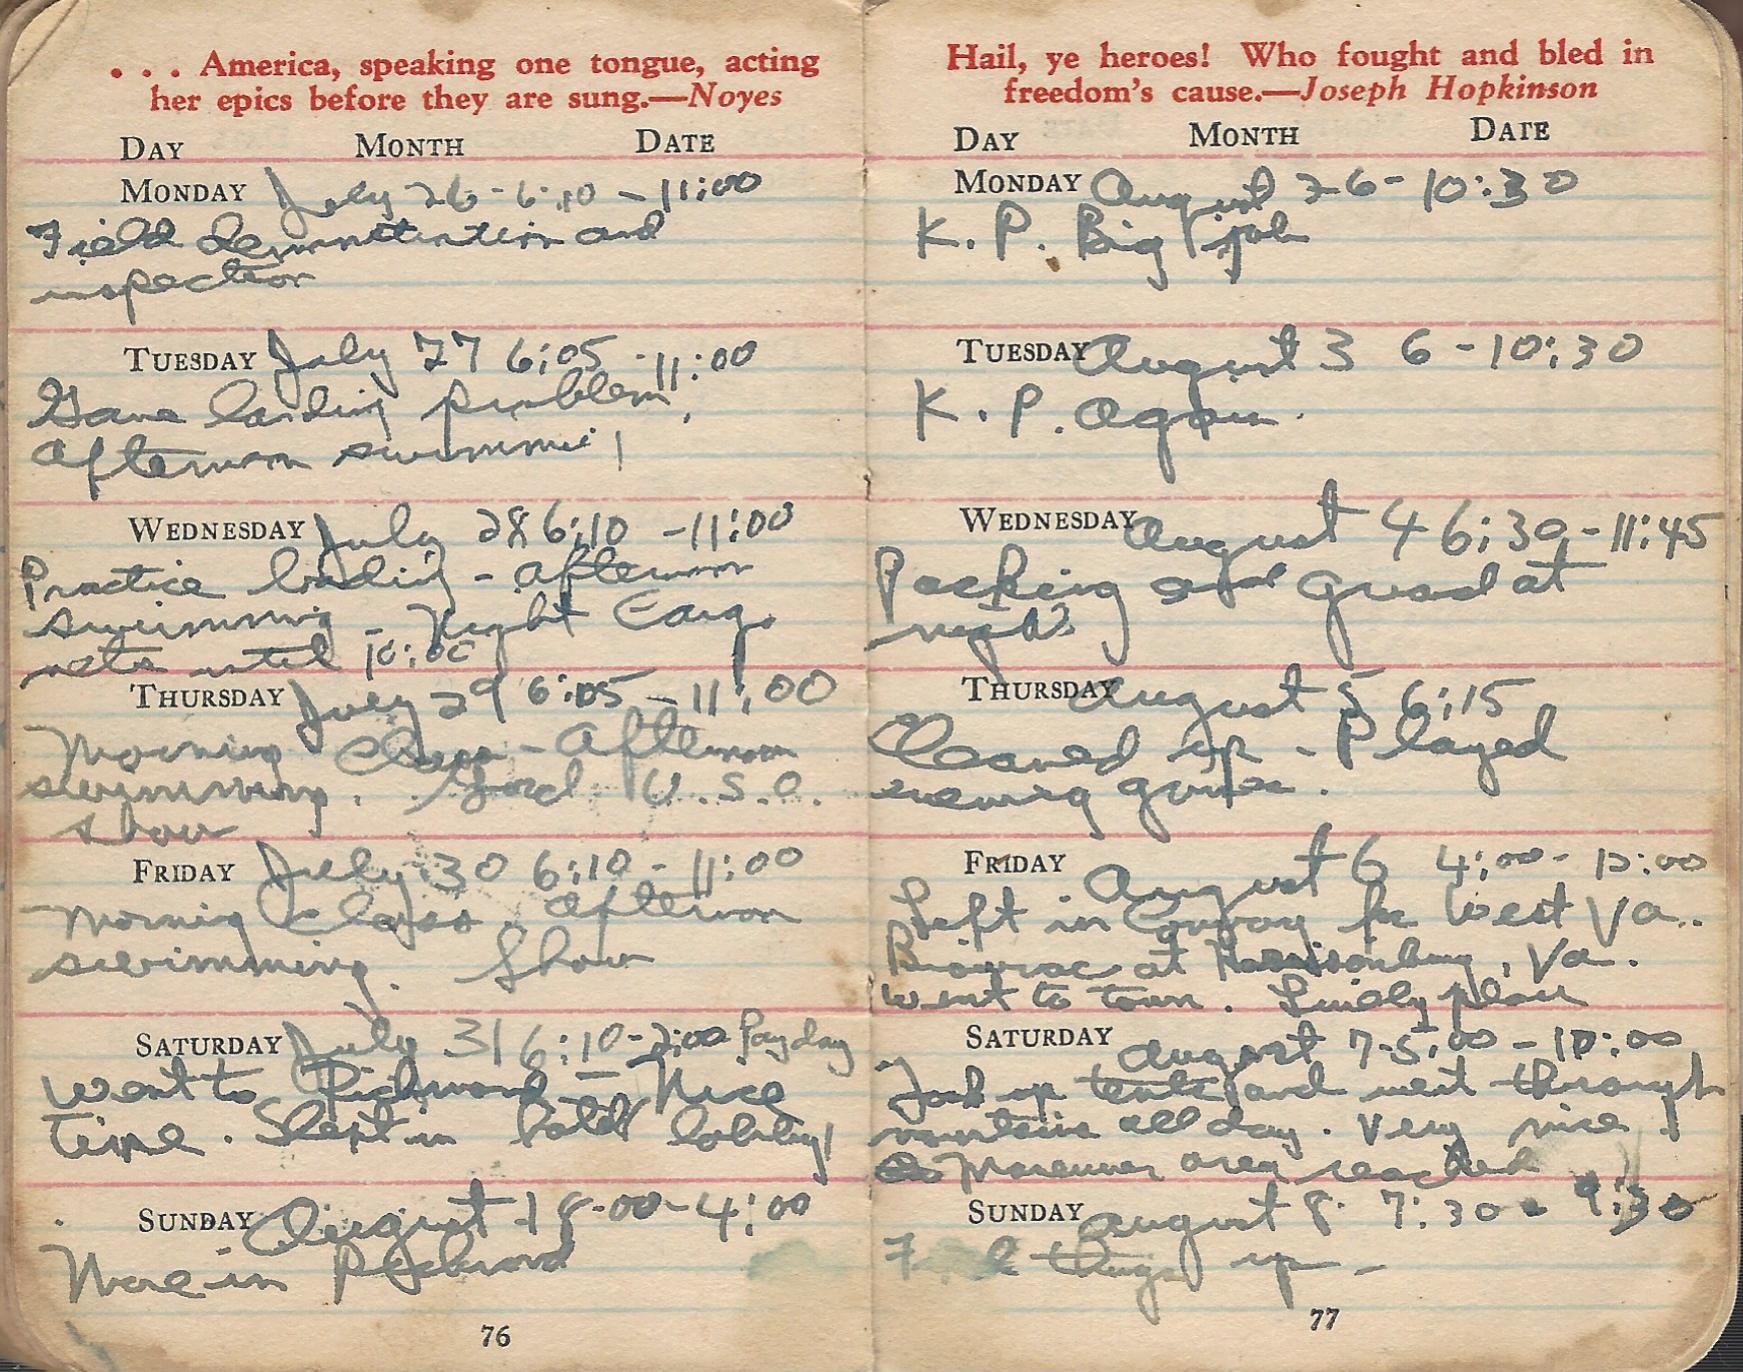 . . . America, speaking one tongue, acting
her epics before they are sung.—Noyes
DAY MONTH DATE
MONDAY July 26 - 6:10 - 11:00
Field demonstration and
inspection
TUESDAY July 27 6:05 - 11:00
Gave landing problem,
afternoon swimming
WEDNESDAY July 28 6:10 - 11:00
Practice landing - afternoon
swimming - Night Cargo
nets until 10:00
THURSDAY July 29 6:05 - 11:00
Morning class - Afternoon
swimming. Good U.S.O.
show
FRIDAY July 30 6:10 - 11:00
Morning class afternoon
swimming. Show
SATURDAY July 31 6:10 - 2:00 Payday
Went to Richmond - Nice
time. Slept in hotel lobby!
SUNDAY August 1 8:00 - 4:00
More in Richmond
76
Hail, ye heroes! Who fought and bled in
freedom's cause.—Joseph Hopkinson
DAY MONTH DATE
MONDAY August 2 6 - 10:30
K.P. Big job
TUESDAY August 3 6 - 10:30
K.P. Again.
WEDNESDAY August 4 6:30 - 11:45
Packing and guard at
night
THURSDAY August 5 6:15
Cleaned up - Played
games.
FRIDAY August 6 4:00 - 12:00
Left in Convoy for West Va.
Bivouac at Harrisonburg, Va.
Went to town. Lively place
SATURDAY August 7 - 5:00 - 10:00
Took up tents and went through
mountains all day. Very nice.
Maneuver area reached
SUNDAY August 8 7:30 - 9:30
things up -
77